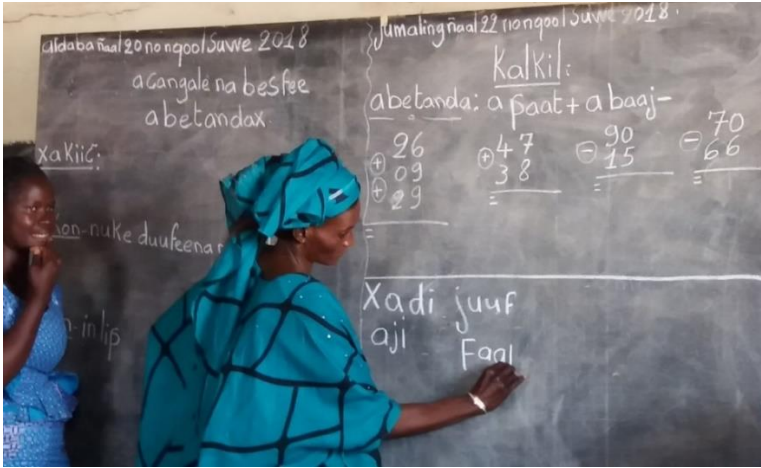 aldaba ñaal 20 no nqool Suwe 2018
a cangale na besfee
a betandax
xakiic:
non-nuke duufeena
n-in lip
Jumaling ñaal 22 no nqool Suwe 2018.
Kalkil:
a betanda: a paat + a baaj -
26
+ 09
+ 29
=
+ 47
38
=
- 90
15
=
- 70
66
=
Xadi juuf
aji Faal